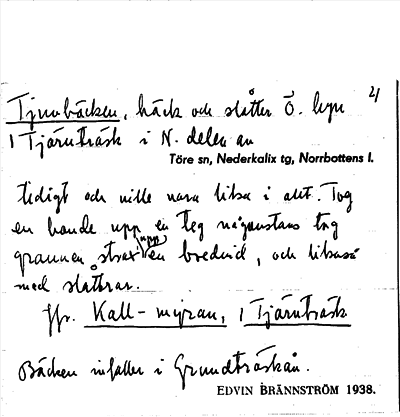 21
Tjuvbäcken, bäck och slåtter Ö. byn
1 Tjärnträsk i N. delen av
Töre sn, Nederkalix tg, Norrbottens l.
tidigt och ville vara lika i allt. Tog
en bonde upp en teg någonstans tog
grannen strax upp en bredvid, och likaså
med slåttrar.
Jfr. Kall-myran, 1 Tjärnträsk
Bäcken infaller i Grundträskån.
EDVIN BRÄNNSTRÖM 1938.